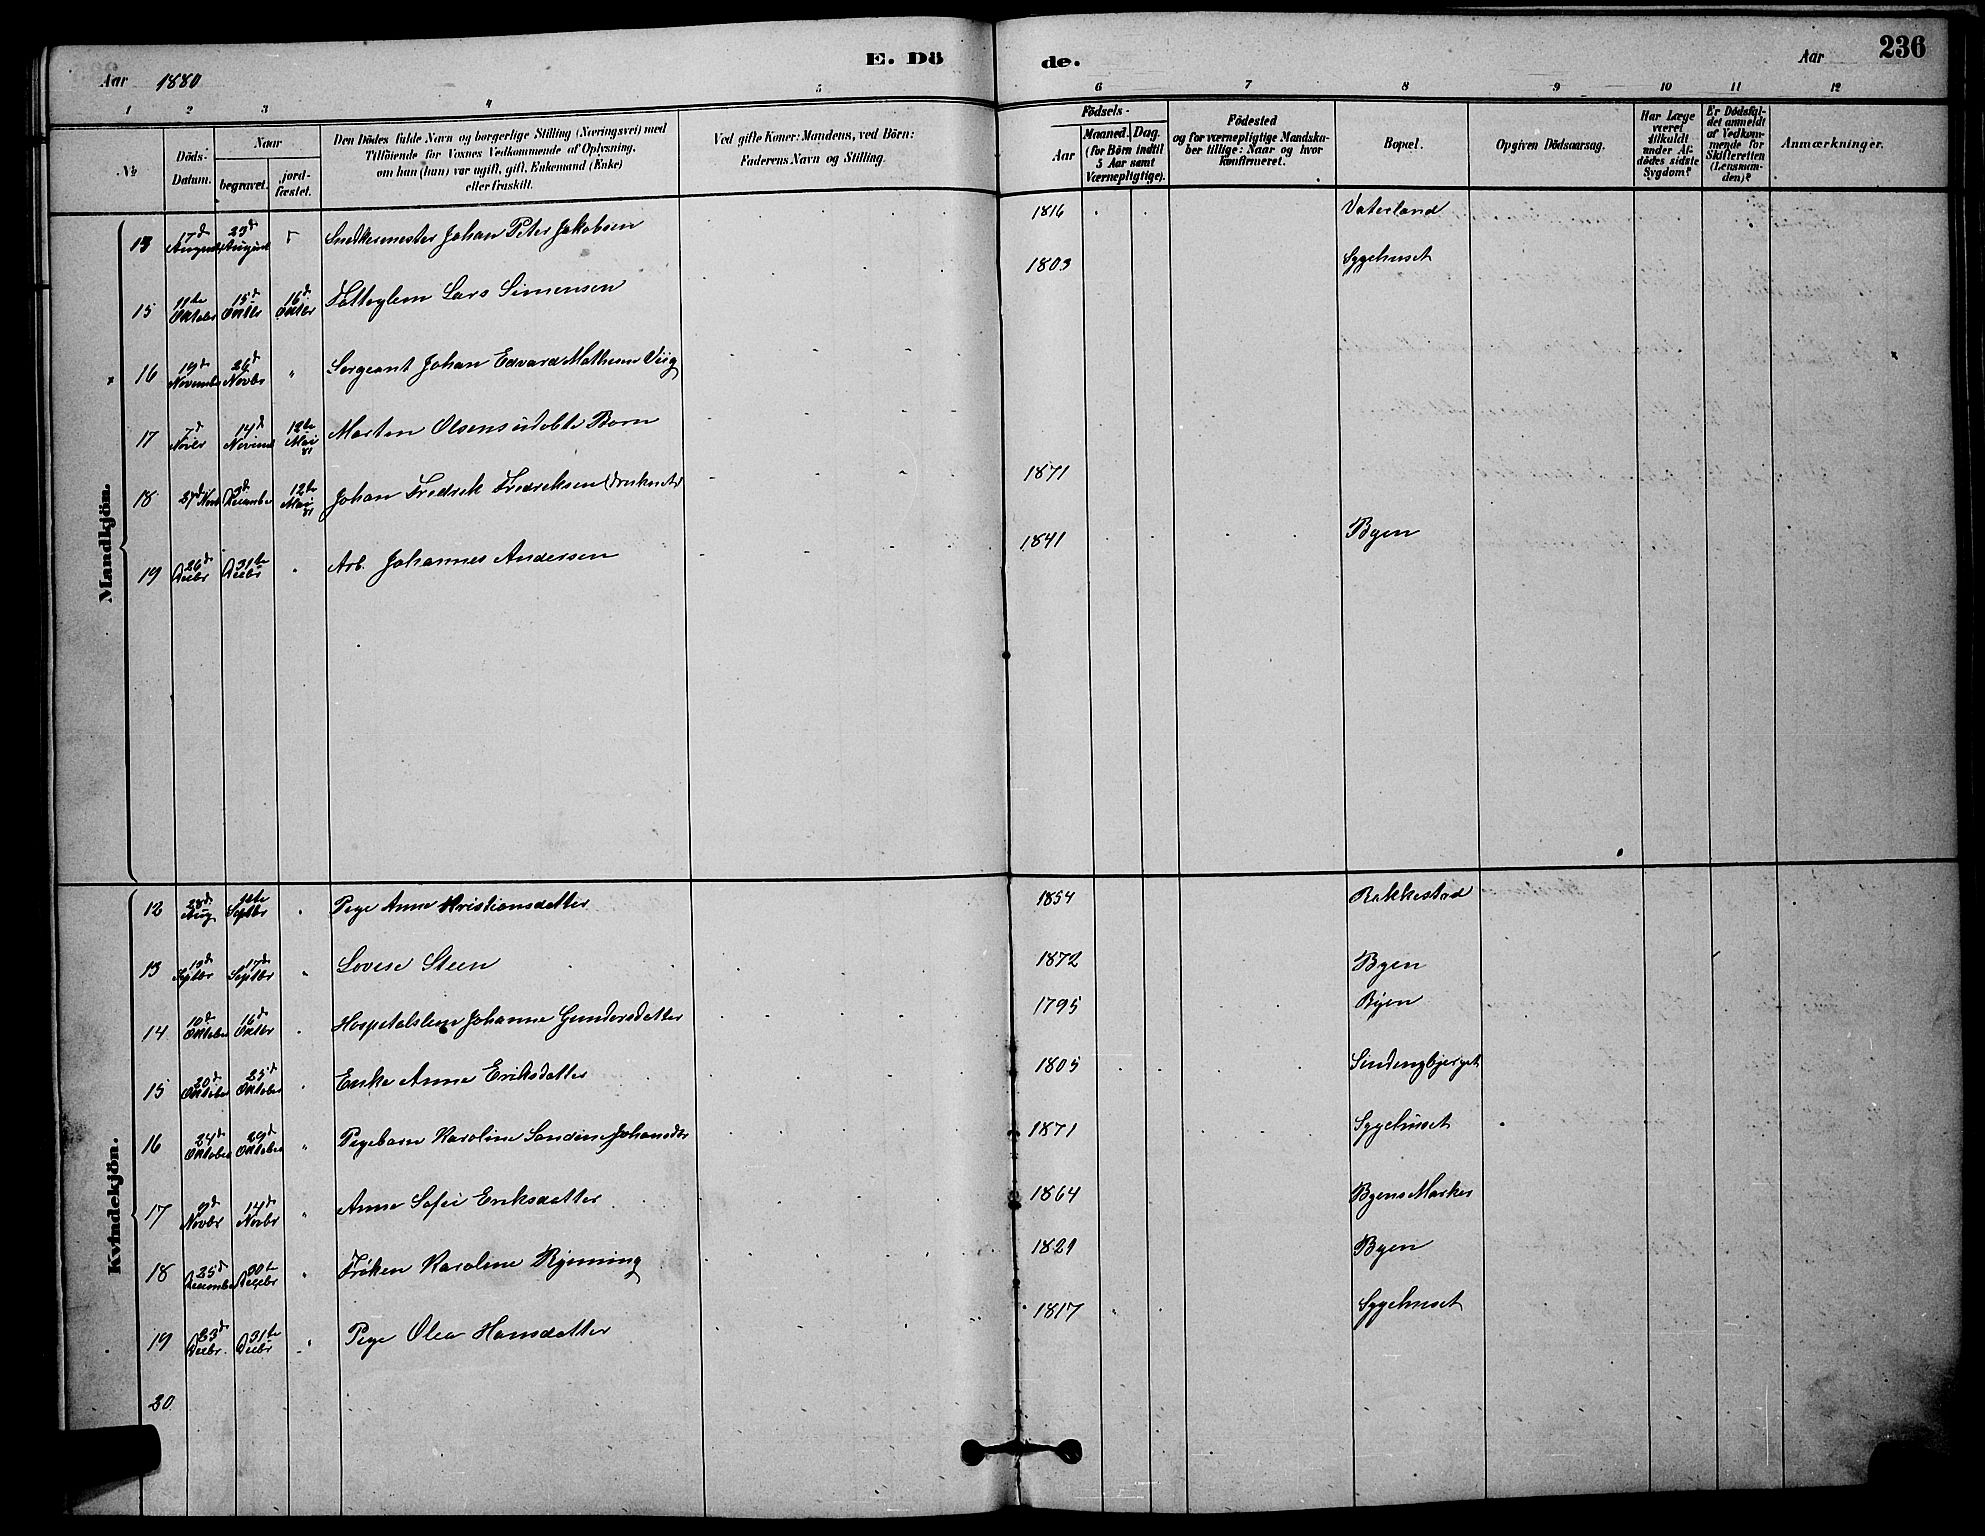 E. Dö de.
Aar 1880
Aar 236
1 2 3 4 5 6 7 8 9 10 11 12
№
Döds-Datum.
Naar
begravet.
jord-fæstet.
Den Dödes fulde Navn og borgerlige Stilling (Næringsvei) med
Tilföiende for Voxnes Vedkommende af Oplysning,
om han (hun) var ugift, gift, Enkemand (Enke)
eller fraskilt.
Ved gifte Koner: Mandens, ved Börn:
Faderens Navn og Stilling.
Födsels-
Aar
Maaned. Dag.
(for Börn indtil
5 Aar samt
Værnepligtige).
Födested
og for værnepligtige Mandska-
ber tillige: Naar og hvor
Konfirmeret.
Bopæl.
Opgiven Dödsaarsag.
Har Læge
været
tilkaldt
under Af-
dödes sidste
Sygdom?
Er Dödsfal-
det anmeldt
af Vedkom-
mende for
Skifteretten
(Lensman-
den)?
Anmærkninger.
Mandkjön.
13 17d August 23d August Snedkermester Johan Peter Jakobsen 1816 Vaterland
15 11te Oktober 15d Oktbr 16d Oktbr Lars Simensen 1803 Sygehuset
16 19d November 26d Novbr " Sergeant Johan Edvard Mathesen Viig
17 7d 14d 12te Mai 81 Morten Olsens udøbte Barn
18 27d December 12te Mai 81 Johan Fredrik Fredriksen 1871
19 26d Decbr 31te Decbr " Arb. Johannes Andersen 1841 Byen
Kvindekjön.
12 28d Aug 1te Septbr " Pige Anne Kristiansdatter 1854 Rakkestad
13 13d Septbr 17d Septbr " Lovise Steen 1872 Byen
14 10d Oktober 16d Oktbr " Hospitalslem Johanne Gundersdatter 1795 Byen
15 20d Oktober 25d Oktober " Enke Anne Eriksdatter 1805
16 24d Oktober 29d Oktober " Pigebarn Karoline Sandine 1871 Sygehuset
17 9d Novbr 14d Novbr " Anne Sofie Eriksdatter 1864 Byens Marker
18 25d December 30te Decbr " Frøken Karoline Bjørning 1821 Byen
19 23d Decbr. 31te Decbr " Pige Olea Hansdatter 1817 Sygehuset
20